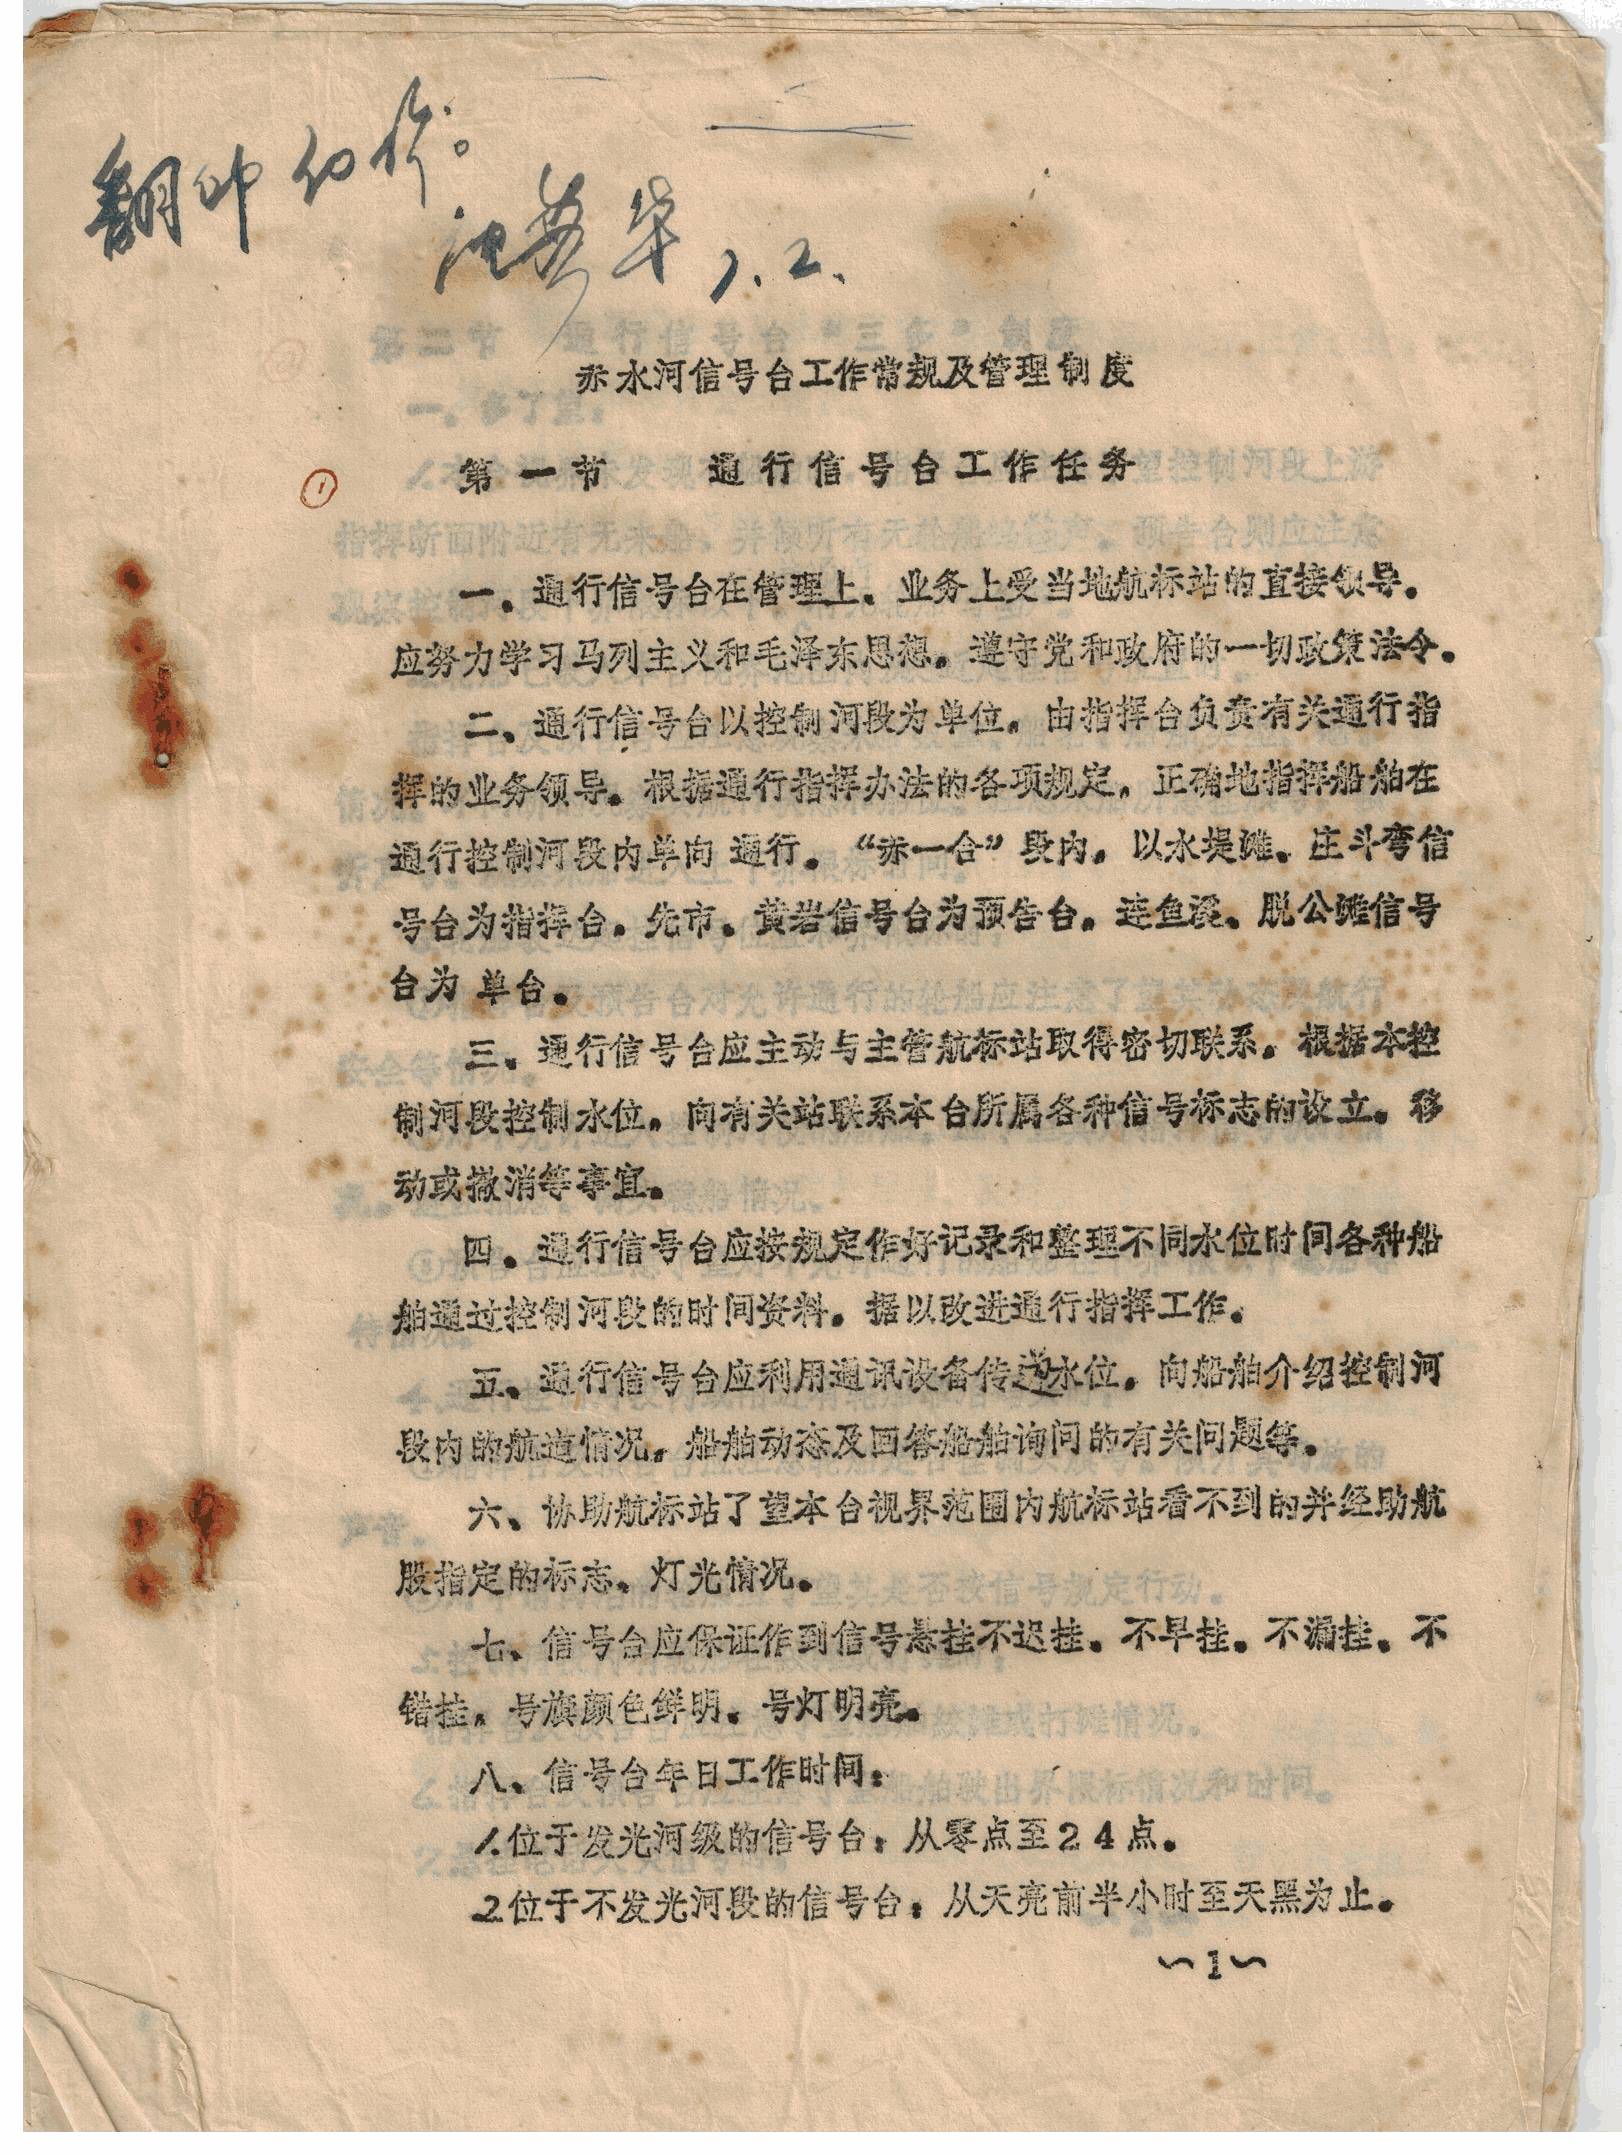 翻印40份。
华 1.2.
赤水河信号台工作常规及管理制度
①
第一节 通行信号台工作任务
一。通行信号台在管理上、业务上受当地航标站的直接领导。
应努力学习马列主义和毛泽东思想。遵守党和政府的一切政策法令。
二、通行信号台以控制河段为单位。由指挥台负责有关通行指
挥的业务领导。根据通行指挥办法的各项规定。正确地指挥船舶在
通行控制河段内单向通行。“赤一合”段内。以水堤滩、庄斗弯信
号台为指挥台。先市。黄岩信号台为预告台。连鱼溪、脱公滩信号
台为单台。
三、通行信号台应主动与主管航标站取得密切联系。根据本控
制河段控制水位。向有关站联系本台所属各种信号标志的设立。移
动或撤消等事宜。
四。通行信号台应按规定作好记录和整理不同水位时间各种船
舶通过控制河段的时间资料。据以改进通行指挥工作。
五、通行信号台应利用通讯设备传递水位。向船舶介绍控制河
段内的航道情况。船舶动态及回答船舶询问的有关问题等。
六、协助航标站了望本台视界范围内航标站看不到的并经助航
股指定的标志。灯光情况。
七、信号台应保证作到信号悬挂不迟挂。不早挂。不漏挂。不
错挂。号旗颜色鲜明。号灯明亮。
八、信号台年日工作时间：
1.位于发光河级的信号台：从零点至24点。
2位于不发光河段的信号台：从天亮前半小时至天黑为止。
～1～